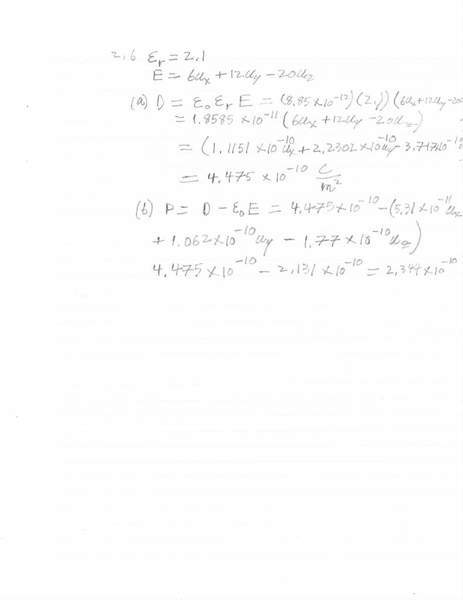 2.6 εr = 2.1
E = 6ux + 12uy - 20uz
(a) D = ε0 εr E = (8.85 × 10^-12)(2.1)(6ux + 12uy - 20
= 1.8585 × 10^-11 (6ux + 12uy - 20uz)
= (1.1151 × 10^-10 ux + 2.2302 × 10^-10 uy - 3.717 × 10^-10
= 4.475 × 10^-10 C/m²
(b) P = D - ε0 E = 4.475 × 10^-10 - (5.31 × 10^-11 ux
+ 1.062 × 10^-10 uy - 1.77 × 10^-10 uz)
4.475 × 10^-10 - 2.131 × 10^-10 = 2.344 × 10^-10